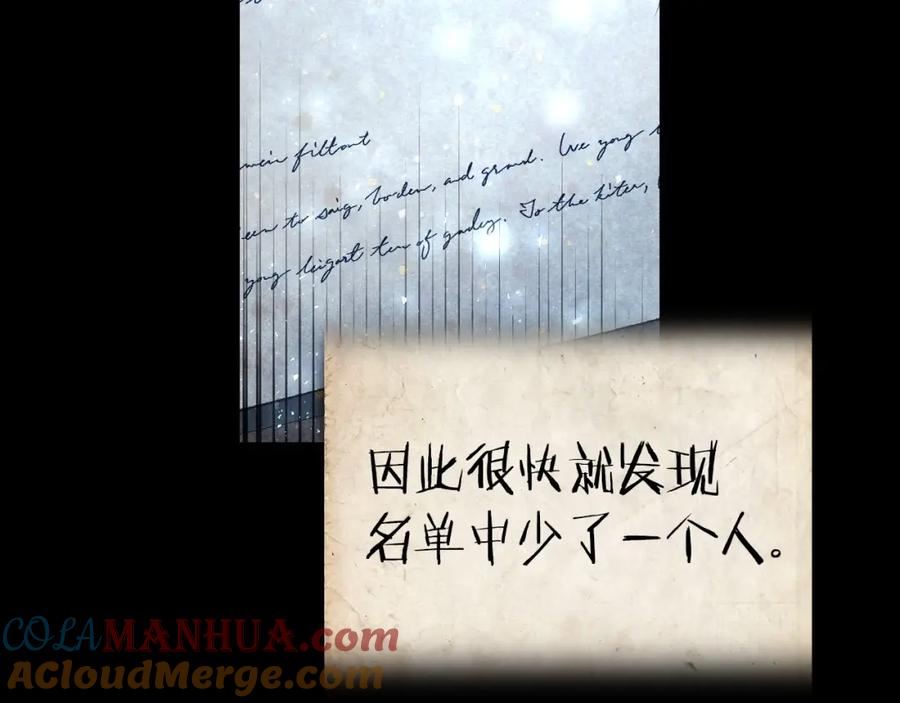 filtont
to saig, boden, and grand. We yong
yong leigart ten of gadey. To the kiter,
因此很快就发现
名单中少了一个人。
COLAMANHUA.com
ACloudMerge.com